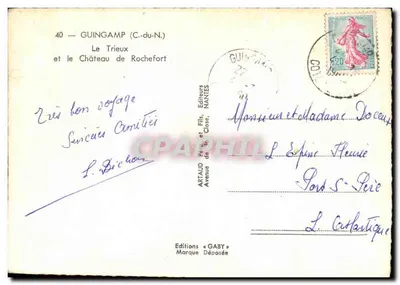 40 — GUINGAMP (C.-du-N.)
Le Trieux
et le Château de Rochefort
Très bon voyage
Sincères Amitiés
ARTAUD Père et Fils, Editeurs
Avenue de la Close, NANTES
GUINGAMP
0,20
Monsieur et Madame
L'Epine Fleurie
Port St Père
L. Atlantique
CPAPHIL
Editions «GABY»
Marque Déposée